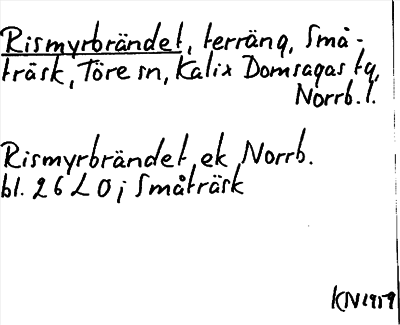 Rismyrbrändet, terräng, Små-
träsk, Töre sn, Kalix Domsagas tg,
Norrb. l.
Rismyrbrändet ek Norrb.
bl. 26 L 0 j Småträsk
KN 1959